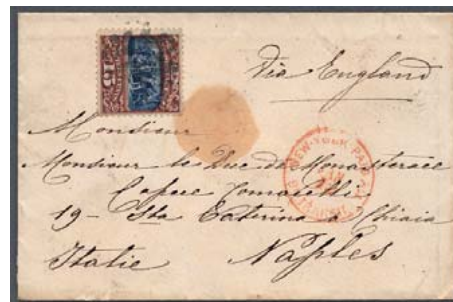 Via England
Monsieur
Monsieur le Duc de Monasterace
Capece
19 - Sta Caterina a Chiaia
Italie Naples
NEW-YORK PAID
15